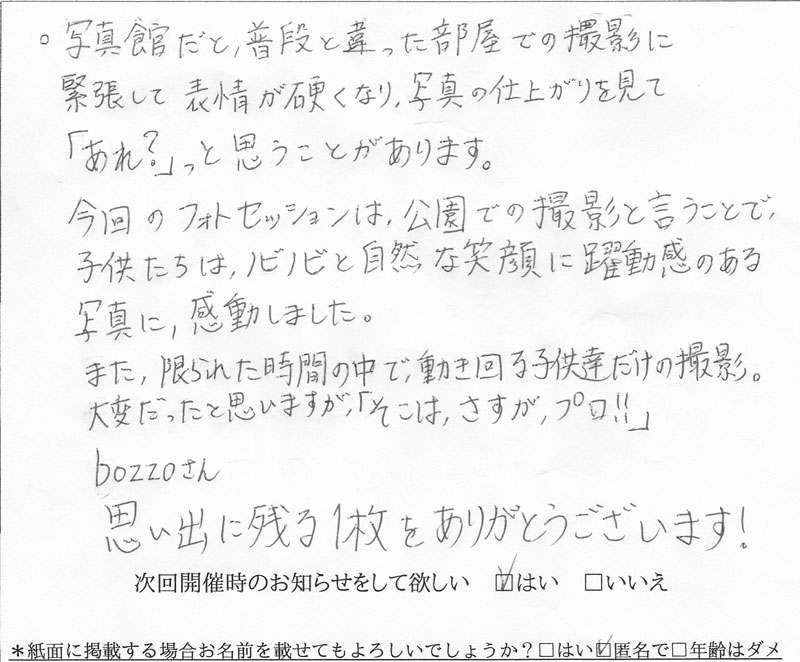 。写真館だと,普段と違った部屋での撮影に
緊張して表情が硬くなり,写真の仕上がりを見て
「あれ?」っと思うことがあります。
今回のフォトセッションは,公園での撮影と言うことで,
子供たちは,ノビノビと自然な笑顔に躍動感のある
写真に,感動しました。
また,限られた時間の中で,動き回る子供達だけの撮影。
大変だったと思いますが,「そこは,さすが,プロ!!」
bozzoさん
思い出に残る1枚をありがとうございます!
次回開催時のお知らせをして欲しい ☑はい □いいえ
*紙面に掲載する場合お名前を載せてもよろしいでしょうか?□はい☑匿名で□年齢はダメ